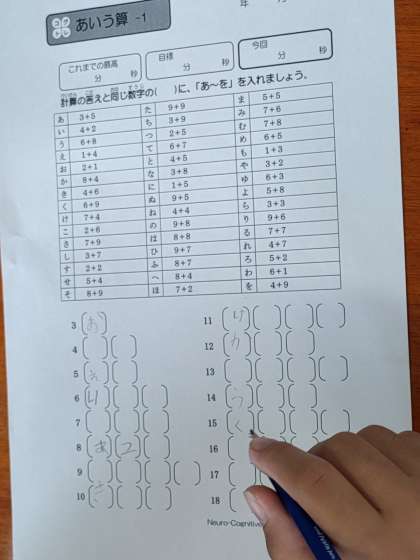 コグトレ あいう算 -1
年 月
これまでの最高 分 秒
目標 分 秒
今回 分 秒
計算の答えと同じ数字の( )に、「あ〜を」を入れましょう。
あ 3+5 た 9+9 ま 5+5
い 4+2 ち 3+9 み 7+6
う 6+8 つ 2+5 む 7+8
え 1+4 て 6+7 め 6+5
お 2+1 と 4+5 も 1+3
か 8+4 な 3+8 や 3+2
き 4+6 に 1+5 ゆ 6+3
く 6+9 ぬ 9+5 よ 5+8
け 7+4 ね 4+4 ら 3+3
こ 2+6 の 9+8 り 9+6
さ 7+9 は 8+8 る 7+7
し 3+7 ひ 9+7 れ 4+7
す 2+2 ふ 8+7 ろ 5+2
せ 5+4 へ 8+4 わ 6+1
そ 8+9 ほ 7+2 を 4+9
3 (お)
4 ( )( )
5 (え)( )
6 (い)( )( )
7 ( )( )( )
8 (あ)(こ)( )
9 ( )( )( )( )
10 (き)( )( )
11 (け)( )( )( )
12 (か)( )( )
13 ( )( )( )( )
14 (う)( )( )
15 (く)( )( )( )
16 (
17 (
18 (
Neuro-Cognitive